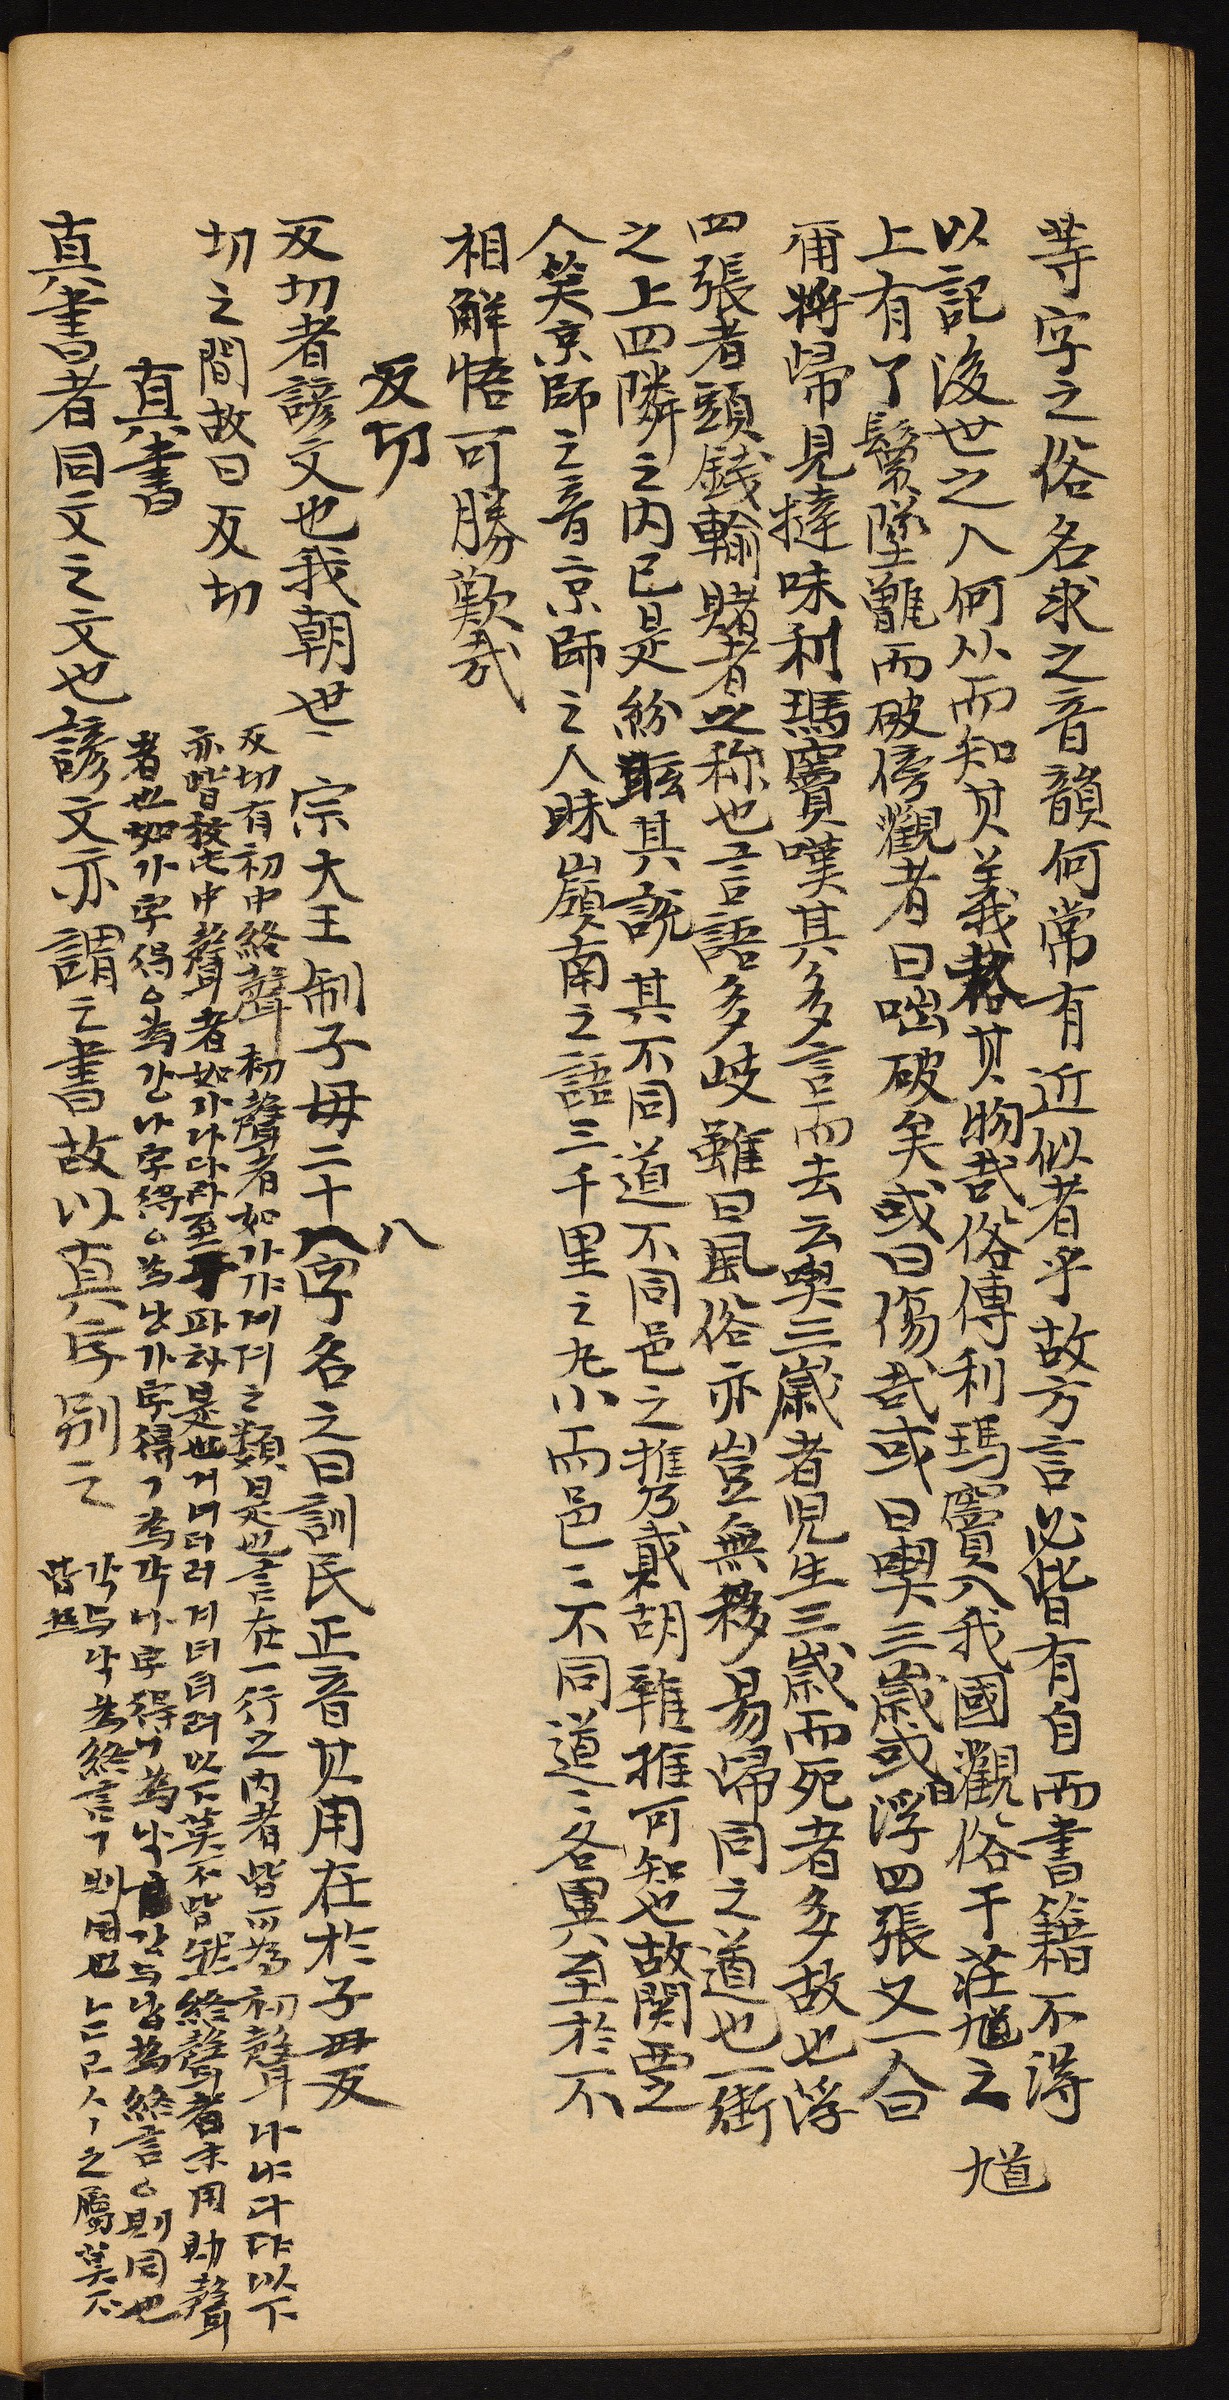 等字之俗名求之音韻何常有近似者乎故方言必皆有自而書籍不得
以記後世之人何从而知其義格其物哉俗傳利瑪竇入我國觀俗于莊馗之
馗
上有了鬟墜甕而破傍觀者曰咄破矣或曰傷哉或曰喫三歲或曰浮四張又一人曰
甭將歸見撻味利瑪竇嘆其多言而去云喫三歲者兒生三歲而死者多故也浮
四張者頭錢輸賭者之称也言語多歧雖曰風俗亦豈無移易歸同之道也一衖
之上四隣之内已是紛眩其說其不同道不同邑之推乃貳胡雜推可知也故関西之
人笑京師之音京師之人昧嶺南之語三千里之丸小而邑〻不同道〻各異至於不
相觧悟可勝歎哉
反切
八
反切者諺文也我朝世宗大王制子母二十八字名之曰訓民正音其用在於子母反
切之間故曰反切
反切有初中終聲初聲者如가갸거겨之類是也言在一行之内者皆為初聲나냐다댜以下
亦皆放此中聲者如가나다라至于파하是也거너더러겨녀뎌려以下莫不皆然終聲者末用助聲
者也如가字得ㅇ為강나字得ㅇ為낭가字得ㄱ為각나字得ㄱ為낙강与낭為終言ㅇ則同也
각与낙為終言ㄱ則同也ㄴㄷㄹㅅㅣ之屬莫不
皆然
真書
真書者同文之文也諺文亦謂之書故以真字别之